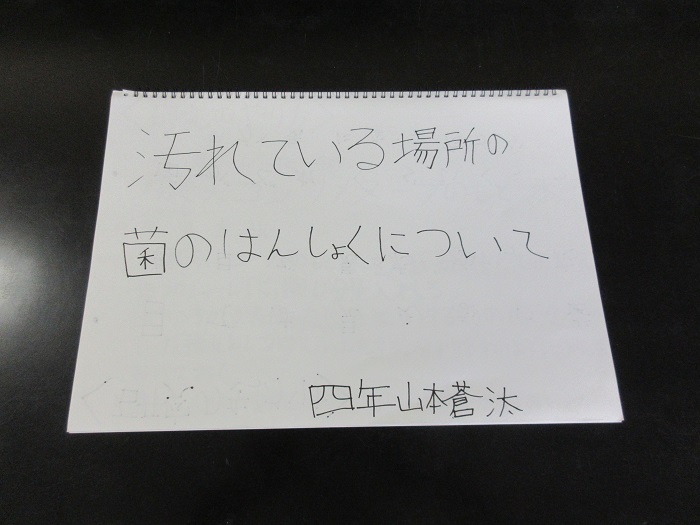 汚れている場所の
菌のはんしょくについて
四年山本蒼汰